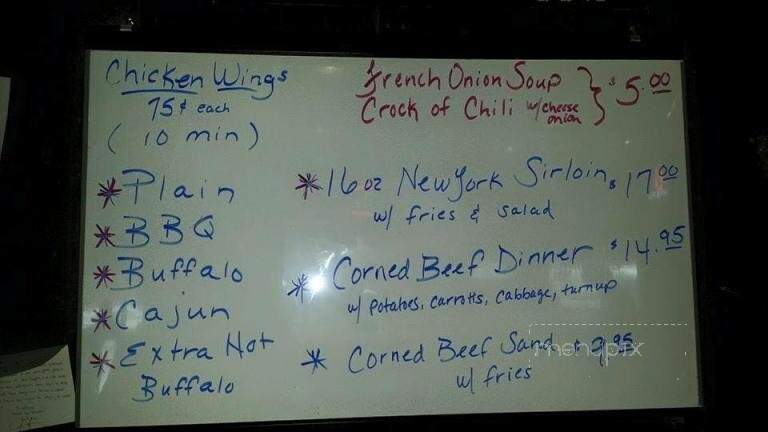 Chicken Wings
75¢ each
(10 min)
* Plain
* BBQ
* Buffalo
* Cajun
* Extra Hot
Buffalo
French Onion Soup
Crock of Chili w/cheese onion } $5.00
* 16oz New York Sirloin $17.00
w/ fries & salad
* Corned Beef Dinner $14.95
w/ potatoes, carrotts, cabbage, turnup
* Corned Beef Sand 9.95
w/ fries
menupix